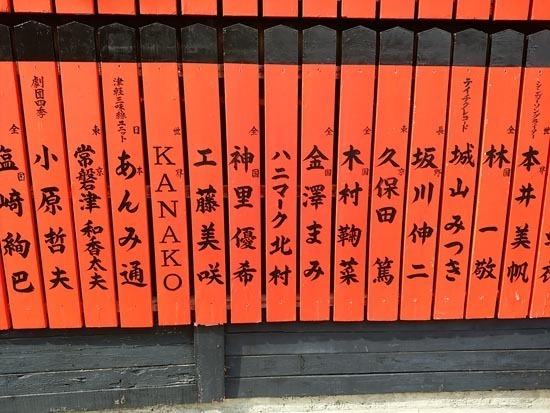 本井美帆
全国
林一敬
テイチクレコード
城山みつき
長野
坂川伸二
久保田篤
全国
木村鞠菜
全国
金澤まみ
ハニマーク北村
全国
神里優希
工藤美咲
世界
KANAKO
津軽三味線ユニット
日本
あんみ通
東京
常磐津和香太夫
劇団四季
小原哲夫
塩崎絢巴